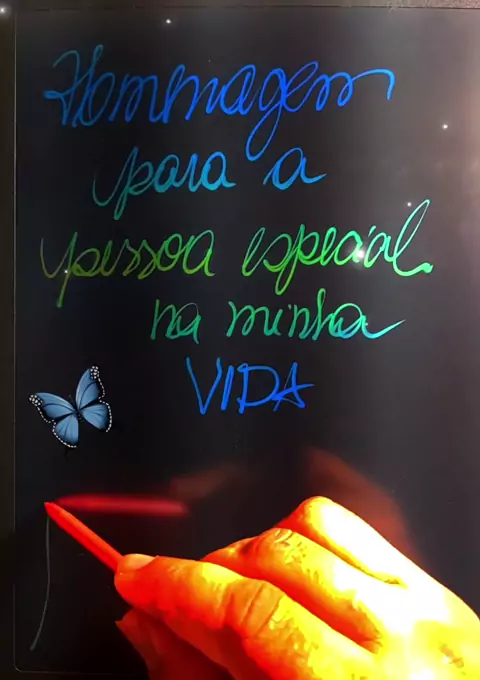 Hommagem
para a
pessoa especial
na minha
VIDA